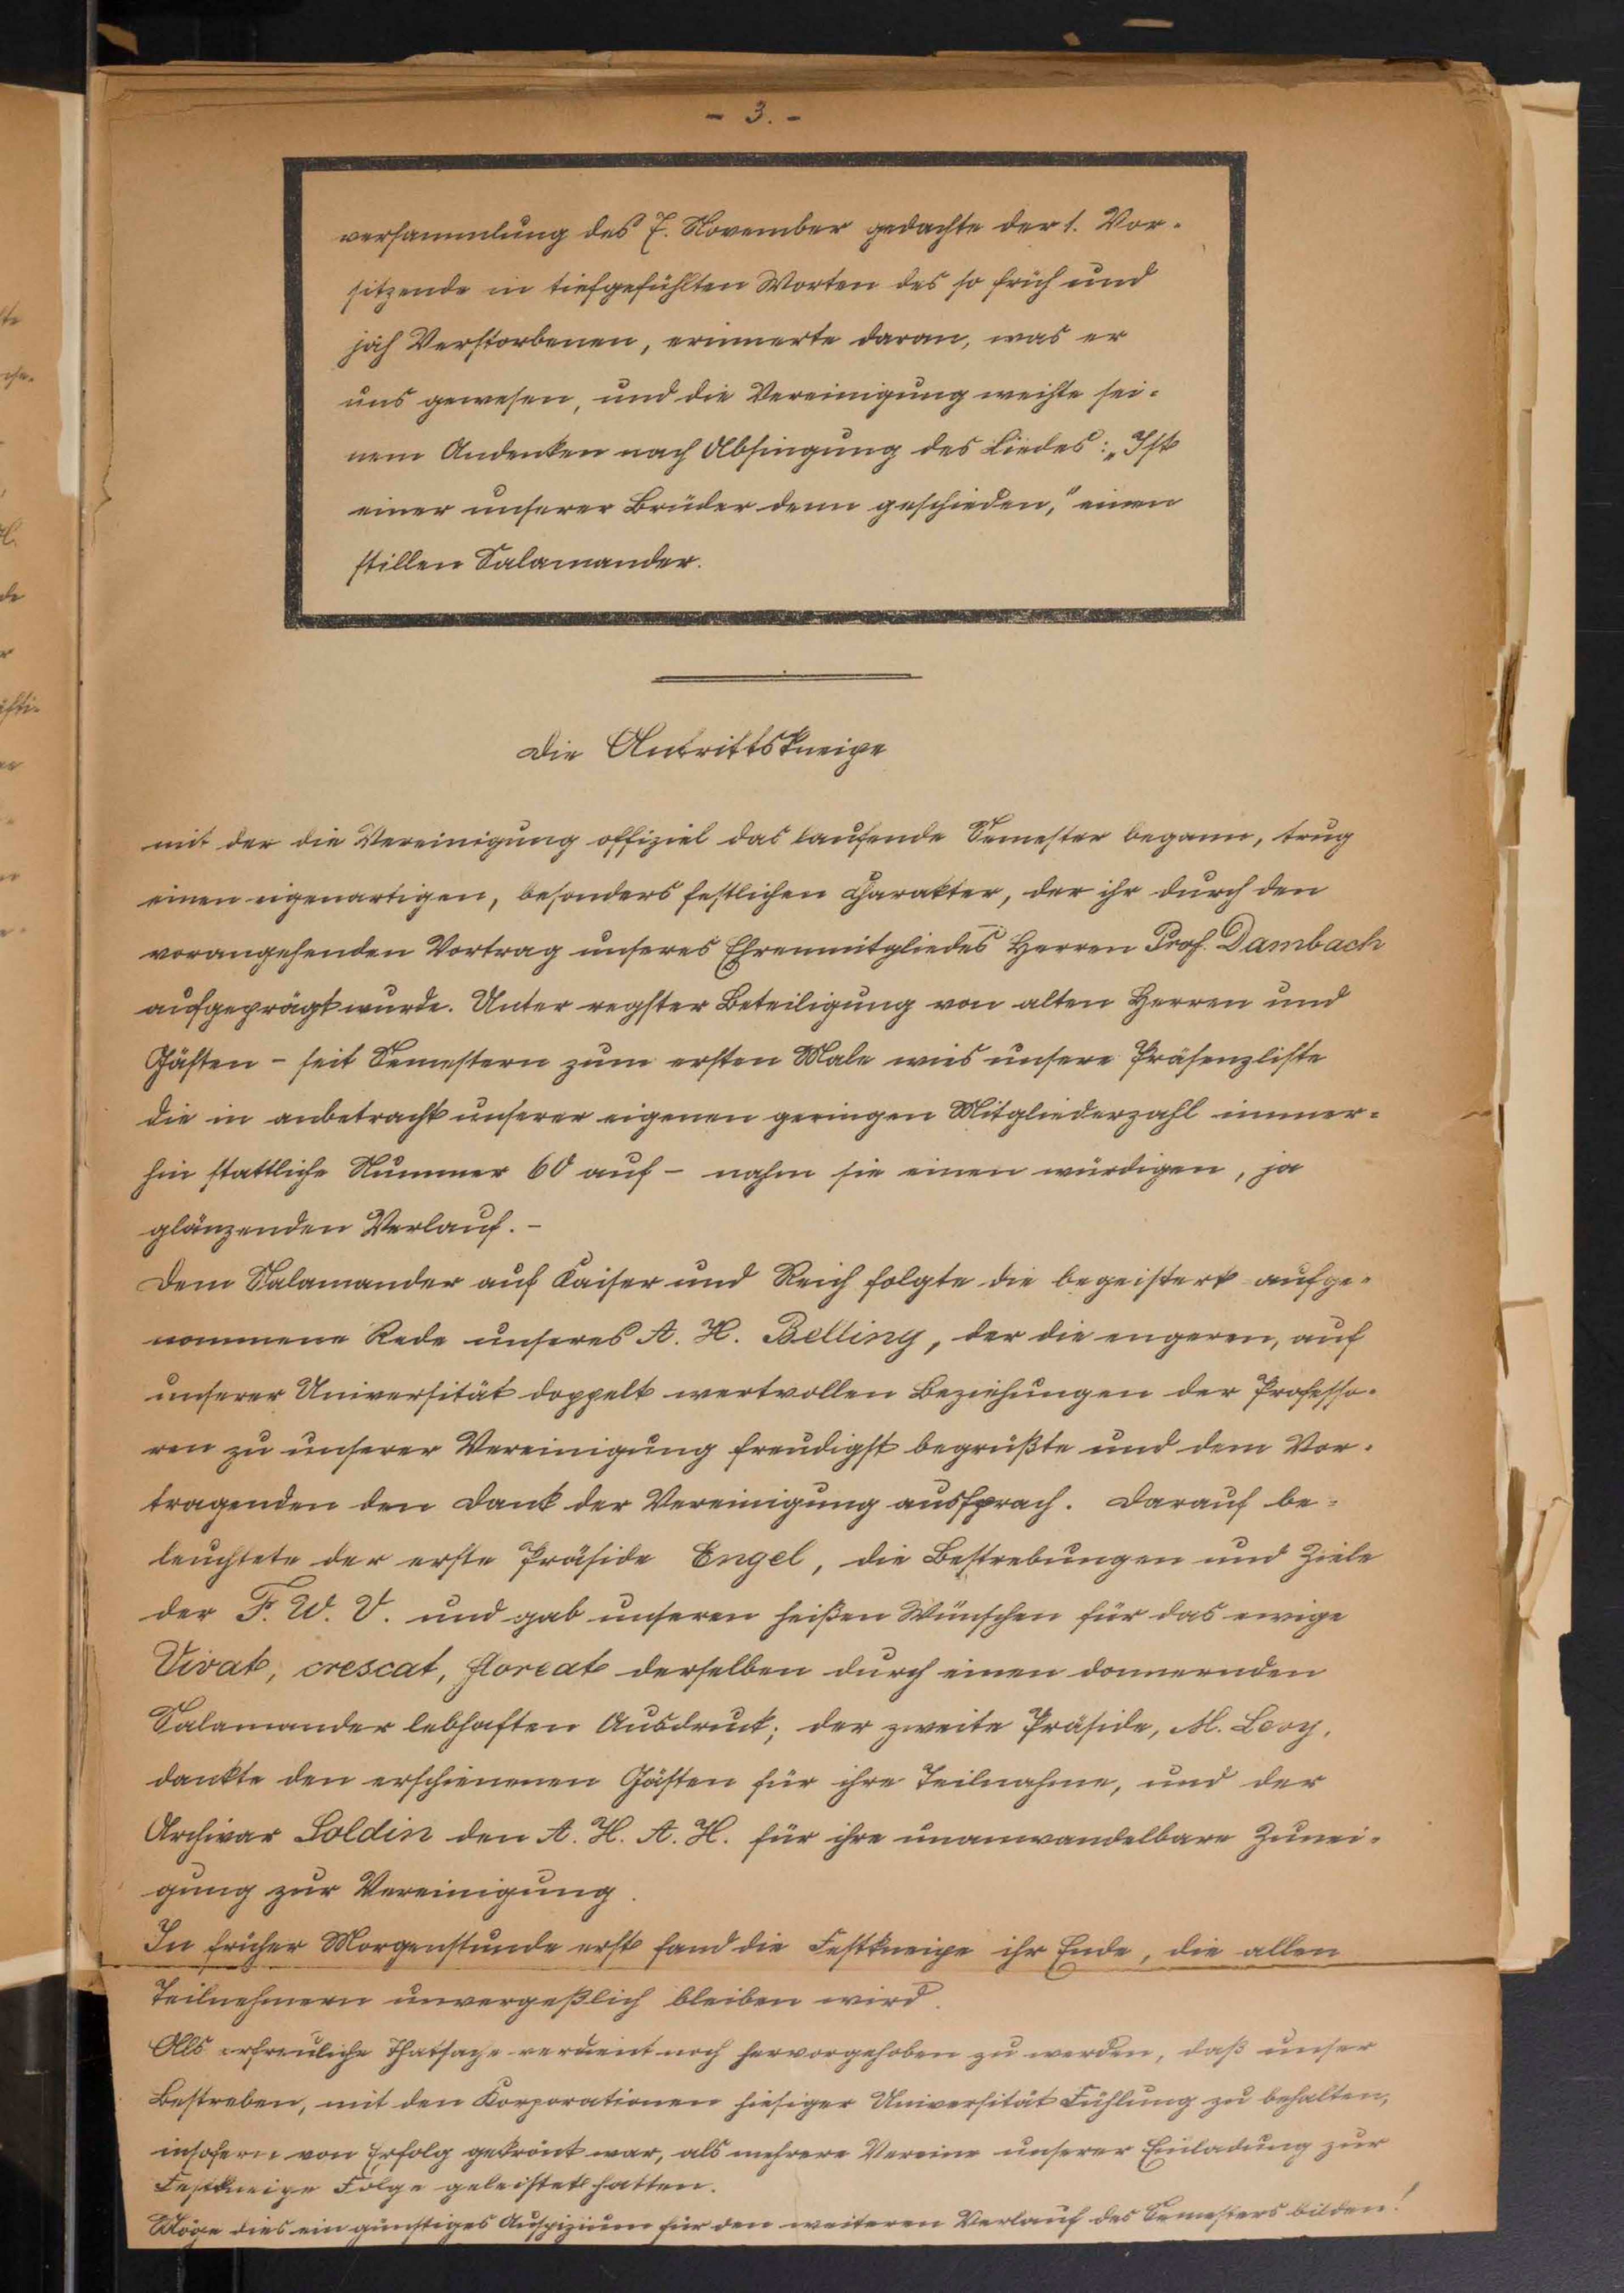 - 3. -
versammlung des 7. November gedachte der 1. Vor-
sitzende in tiefgefühlten Worten des so früh und
jäh Verstorbenen, erinnerte daran, was er
uns gewesen, und die Vereinigung weihte sei-
nem Andenken nach Absingung des Liedes: „Ist
einer unserer Brüder denn geschieden," einen
stillen Salamander.
Die Antrittskneipe
mit der die Vereinigung offiziel das laufende Semester begann, trug
einen eigenartigen, besonders festlichen Charakter, der ihr durch den
vorangehenden Vortrag unseres Ehrenmitgliedes Herren Prof. Dambach
aufgeprägt wurde. Unter regster Beteiligung von alten Herren und
Gästen - seit Semestern zum ersten Male wies unsere Präsenzliste
die in anbetracht unserer eigenen geringen Mitgliederzahl immer-
hin stattliche Nummer 60 auf - nahm sie einen würdigen, ja
glänzenden Verlauf. -
Dem Salamander auf Kaiser und Reich folgte die begeistert aufge-
nommene Rede unseres A. H. Belling, der die engeren, auf
unserer Universität doppelt wertvollen Beziehungen der Professo-
ren zu unserer Vereinigung freudigst begrüßte und dem Vor-
tragenden den Dank der Vereinigung aussprach. Darauf be-
leuchtete der erste Präside Engel, die Bestrebungen und Ziele
der F. W. V. und gab unseren heißen Wünschen für das ewige
Vivat, crescat, floreat derselben durch einen donnernden
Salamander lebhaften Ausdruck; der zweite Präside, M. Levy,
dankte den erschienenen Gästen für ihre Teilnahme, und der
Archivar Soldin den A. H. A. H. für ihre unanwandelbare Zunei-
gung zur Vereinigung.
In früher Morgenstunde erst fand die Festkneipe ihr Ende, die allen
Teilnehmern unvergeßlich bleiben wird.
Als erfreuliche Thatsache verdient noch hervorgehoben zu werden, daß unser
Bestreben, mit den Korporationen hiesiger Universität Fühlung zu behalten,
insofern von Erfolg gekrönt war, als mehrere Vereine unserer Einladung zur
Festkneipe Folge geleistet hatten.
Möge dies ein günstiges Auspizium für den weiteren Verlauf des Semesters bilden!